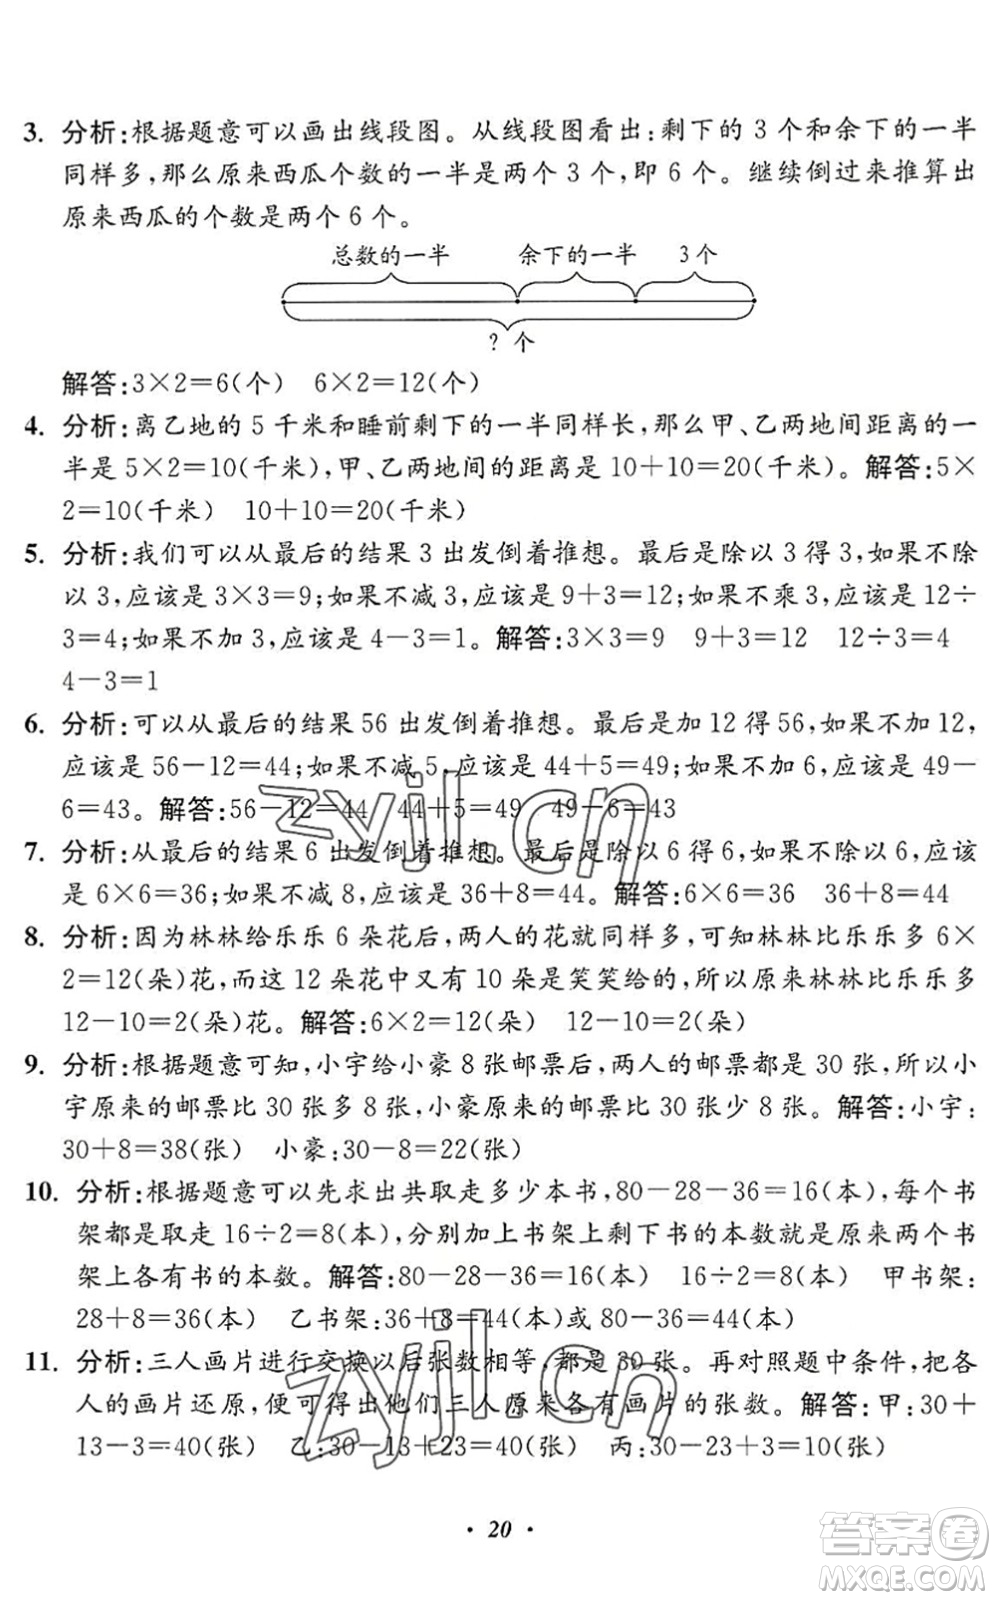 3. 分析:根据题意可以画出线段图。从线段图看出:剩下的 3 个和余下的一半
同样多,那么原来西瓜个数的一半是两个 3 个,即 6 个。继续倒过来推算出
原来西瓜的个数是两个 6 个。
总数的一半 余下的一半 3 个
? 个
解答:3×2=6(个) 6×2=12(个)
4. 分析:离乙地的 5 千米和睡前剩下的一半同样长,那么甲、乙两地距离的一
半是 5×2=10(千米),甲、乙两地间的距离是 10+10=20(千米)。解答:5×
2=10(千米) 10+10=20(千米)
5. 分析:我们可以从最后的结果 3 出发倒着推想。最后是除以 3 得 3,如果不除
以 3,应该是 3×3=9;如果不减 3,应该是 9+3=12;如果不乘 3,应该是 12÷
3=4;如果不加 3,应该是 4-3=1。解答:3×3=9 9+3=12 12÷3=4
4-3=1
6. 分析:可以从最后的结果 56 出发倒着推想。最后是加 12 得 56,如果不加 12,
应该是 56-12=44;如果不减 5,应该是 44+5=49;如果不加 6,应该是 49-
6=43。解答:56-12=44 44+5=49 49-6=43
7. 分析:从最后的结果 6 出发倒着推想。最后是除以 6 得 6,如果不除以 6,应该
是 6×6=36;如果不减 8,应该是 36+8=44。解答:6×6=36 36+8=44
8. 分析:因为林林给乐乐 6 朵花后,两人的花就同样多,可知林林比乐乐多 6×
2=12(朵)花,而这 12 朵花中又有 10 朵是笑笑给的,所以原来林林比乐乐多
12-10=2(朵)花。解答:6×2=12(朵) 12-10=2(朵)
9. 分析:根据题意可知,小宇给小豪 8 张邮票后,两人的邮票都是 30 张,所以小
宇原来的邮票比 30 张多 8 张,小豪原来的邮票比 30 张少 8 张。解答:小宇:
30+8=38(张) 小豪:30-8=22(张)
10. 分析:根据题意可以先求出共取走多少本书,80-28-36=16(本),每个书
架都是取走 16÷2=8(本),分别加上书架上剩下书的本数就是原来两个书
架上各有书的本数。解答:80-28-36=16(本) 16÷2=8(本) 甲书架:
28+8=36(本) 乙书架:36+8=44(本)或 80-36=44(本)
11. 分析:三人画片进行交换以后张数相等,都是 30 张。再对照题中条件,把各
人的画片还原,便可得出他们三人原来各有画片的张数。解答:甲:30+
13-3=40(张) 乙:30-13+23=40(张) 丙:30-23+3=10(张)
· 20 ·
zyjl.cn
zyjl.cn
答案卷
MXQE.COM